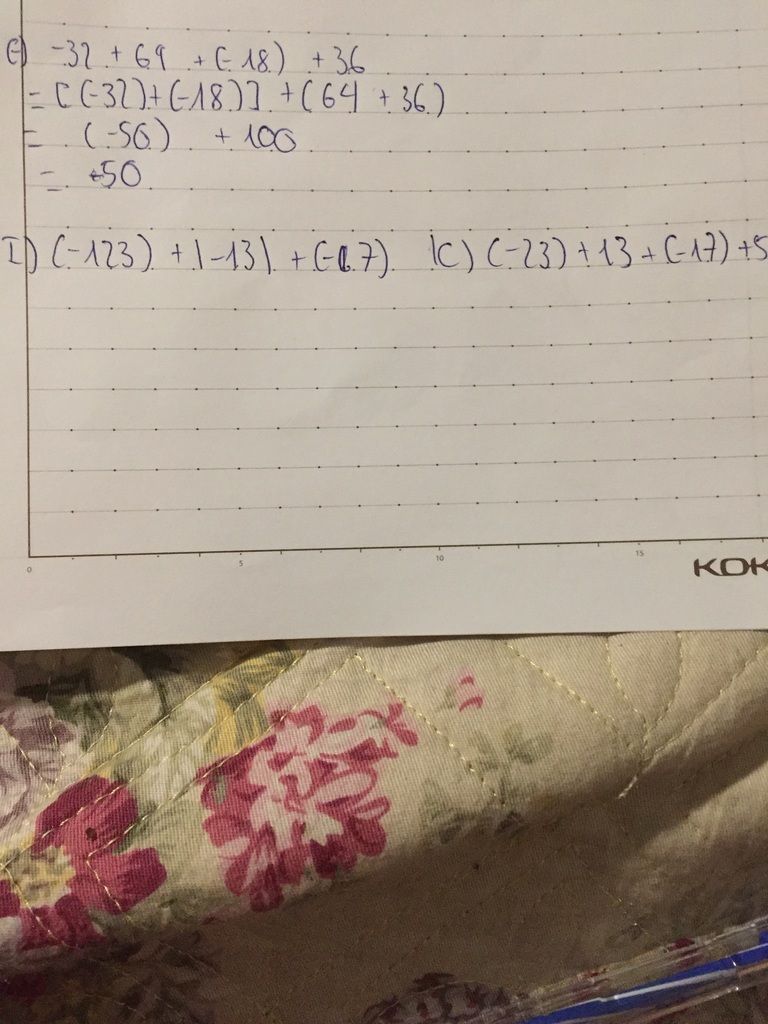 G) -32 + 64 + (-18) + 36
= [(-32)+(-18)] + (64 + 36)
= (-50) + 100
= +50
I) (-123) + |-13| + (-7) K) (-23) + 13 + (-17) + 5
0 5 10 15
KOK